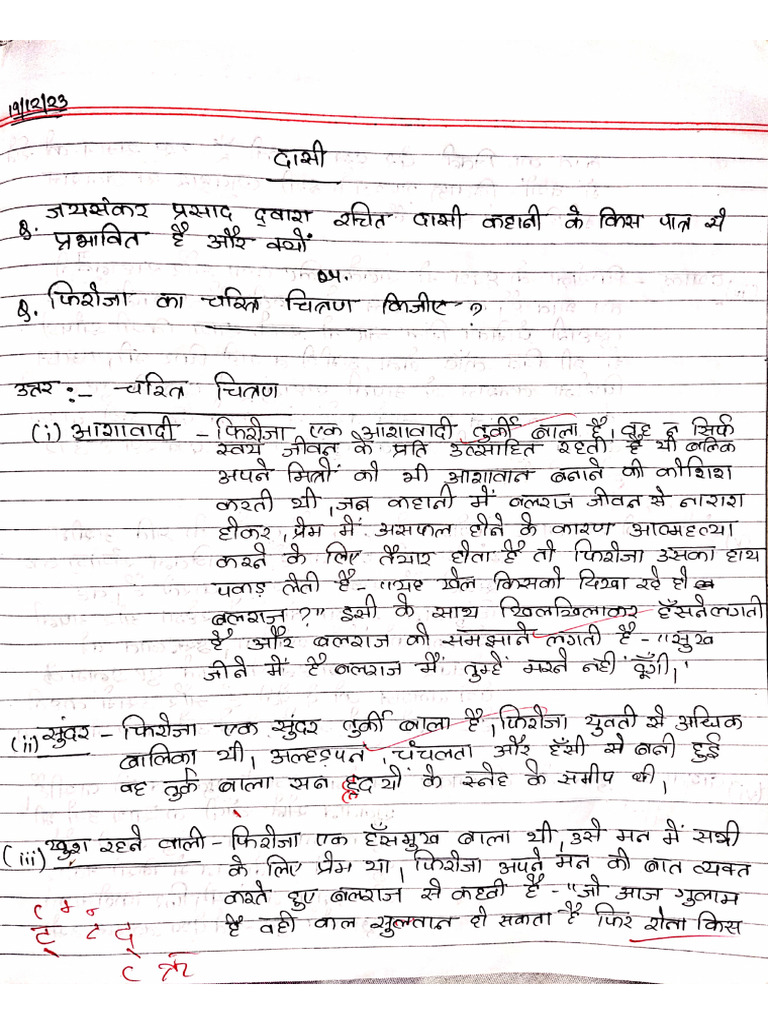 19/12/23
दासी
Q. जयसंकर प्रसाद द्वारा रचित दासी कहानी के किस पात्र से
प्रभावित है और क्यों
Or.
Q. फिरोजा का चरित्र चित्रण किजीए ?
उत्तर :- चरित्र चित्रण
(i) आशावादी - फिरोजा एक आशावादी तुर्की बाला है, वह न सिर्फ
स्वयं जीवन के प्रति उत्साहित रहती है थी बल्कि
अपने मित्रों को भी आशावान बनाने की कोशिश
करती थी, जब कहानी में बलराज जीवन से नाराश
होकर, प्रेम में असफल होने के कारण आत्महत्या
करने के लिए तैयार होता है तो फिरोजा उसका हाथ
पकड़ लेती है - "यह खेल किसको दिखा रहे हो
बलराज ?" इसी के साथ खिलखिलाकर हँसने लगती
है और बलराज को समझाने लगती है - "सुख
जीने में है बलराज मैं तुम्हें मरने नहीं दूँगी,"
(ii) सुंदर - फिरोजा एक सुंदर तुर्की बाला है, फिरोजा युवती से अधिक
बालिका थी, अल्हड़पन, चंचलता और हँसी से बनी हुई
वह तुर्क बाला सन हृदयों के स्नेह के समीप थी,
(iii) खुश रहने वाली - फिरोजा एक हँसमुख बाला थी, उसे मन में सभी
के लिए प्रेम था, फिरोजा अपने मन की बात व्यक्त
करते हुए बलराज से कहती है - "जो आज गुलाम
है वही कल सुल्तान हो सकता है फिर रोना किस